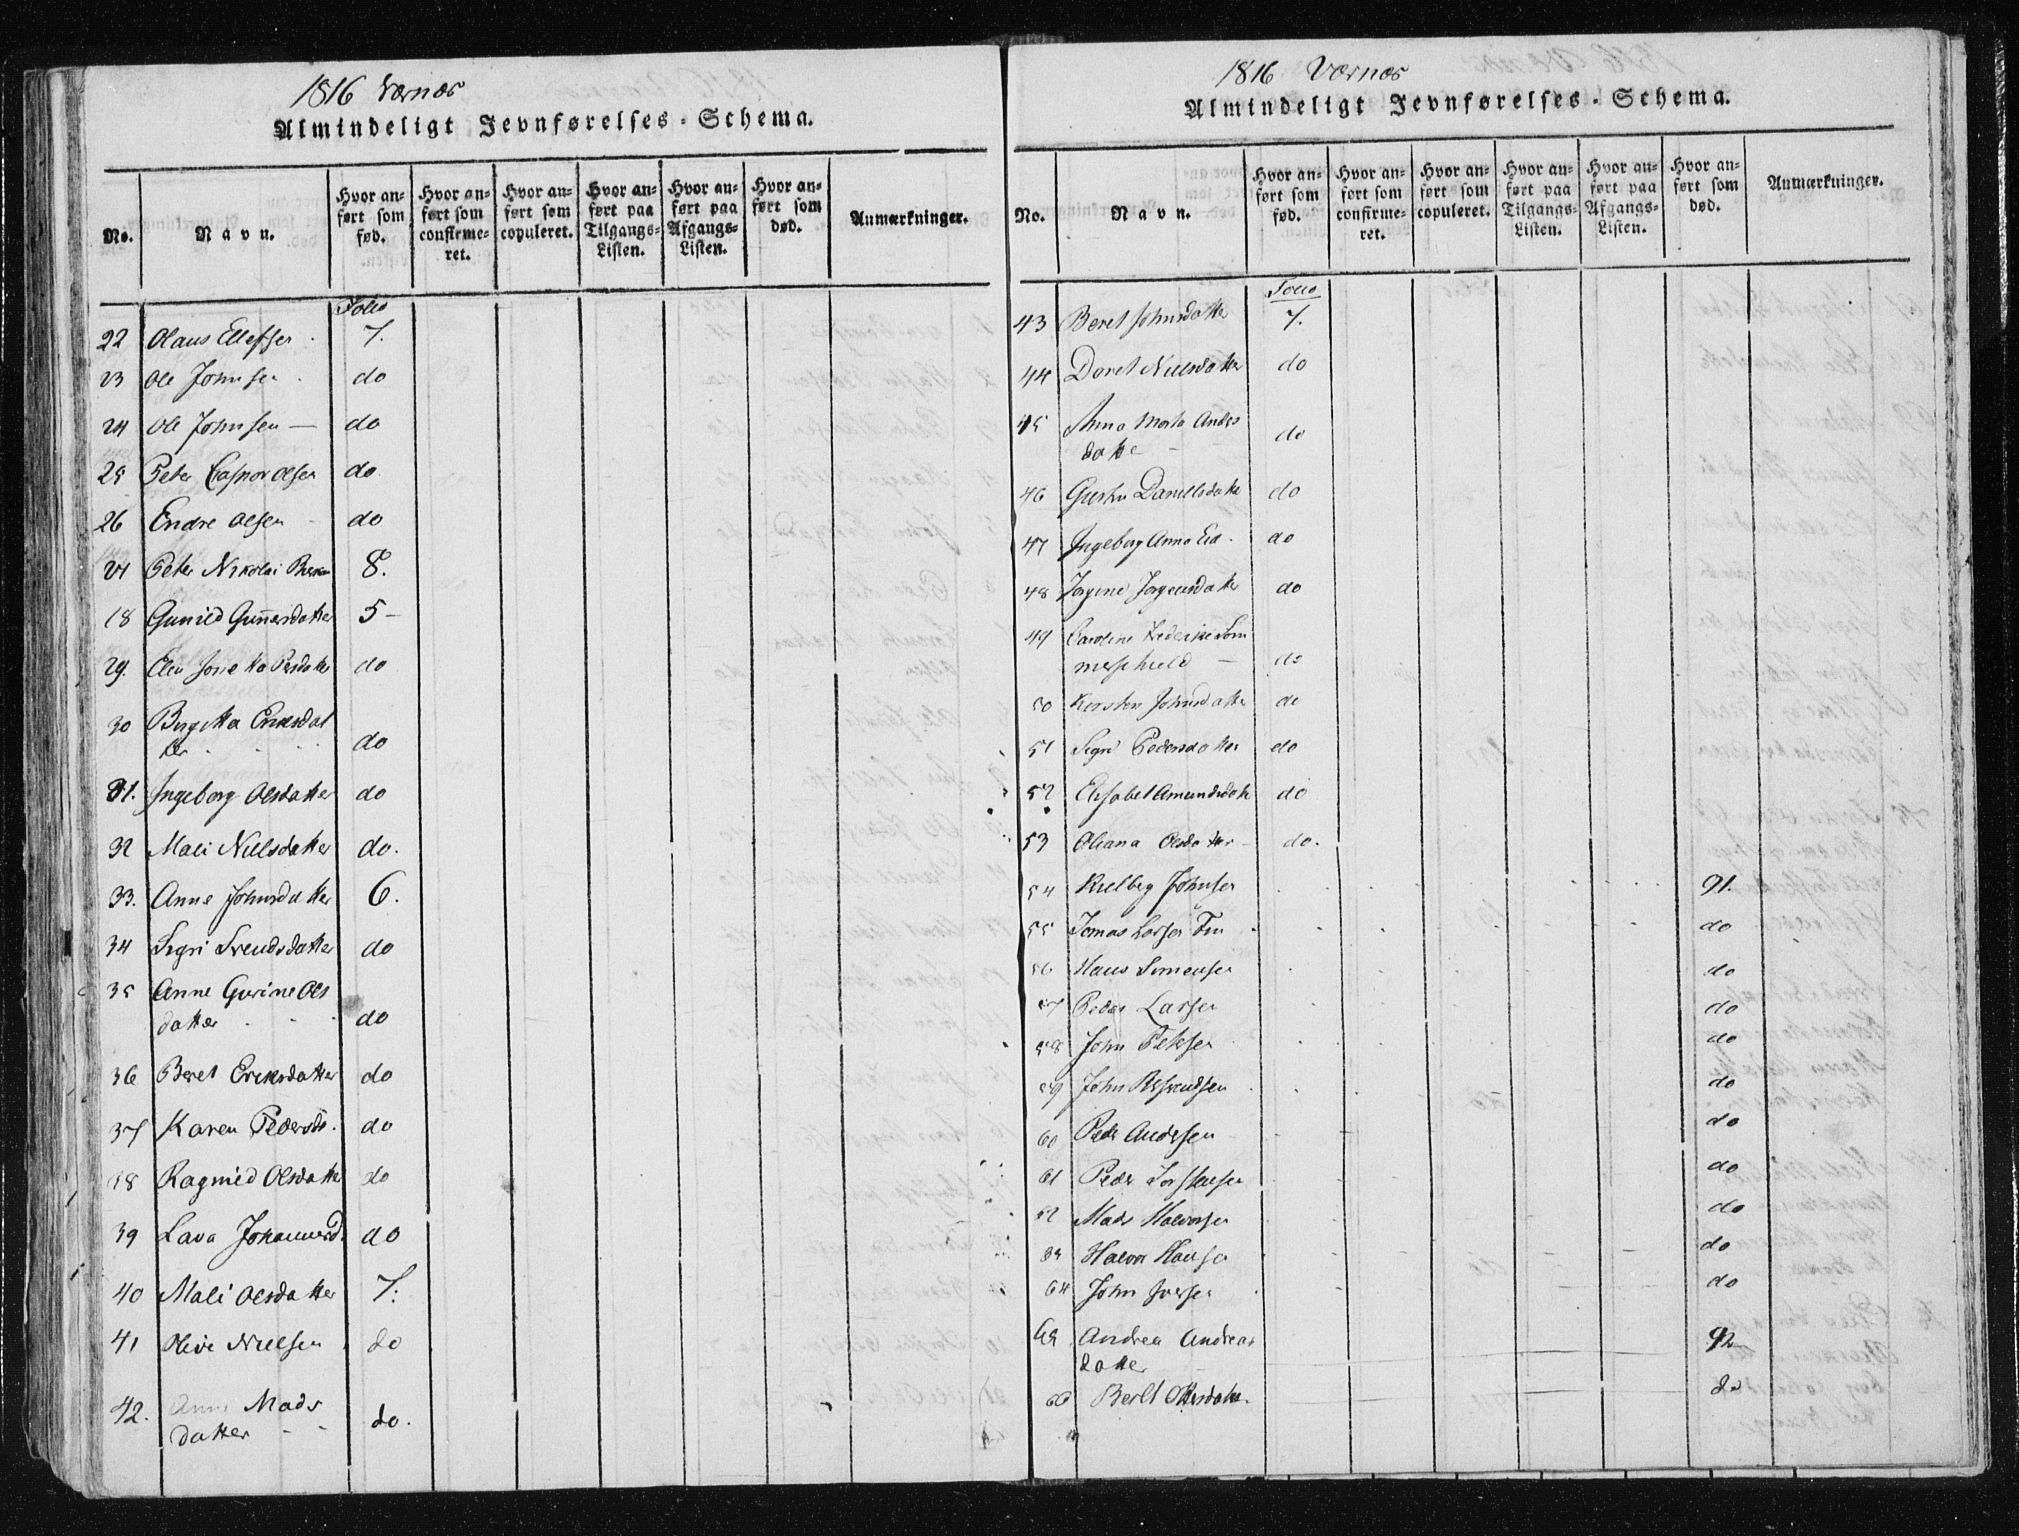 1816 Værnæs
Almindeligt Jevnførelses-Schema.
No. Navn. Hvor anført som fød. Hvor anført som confirmeret. Hvor anført som copuleret. Hvor anført paa Tilgangs-Listen. Hvor anført paa Afgangs-Listen. Hvor anført som død. Anmærkninger.
Folio
22 Olaus Ellefsen 7.
23 Ole Johnsen do
24 Ole Johnsen — do
25 Peter Caspar Olsen do
26 Endre Olsen do
Peter Nikolai 8.
18 Gunild Guñersdatter 5 –
29. Elen do
30 Birgitta Eriksdat
ter do
31. Ingeborg Olsdatter do
32 Mali Nielsdatter do.
33. Anne Johnsdatter 6.
34 Sigri Svendsdatter do
35 Anne Gurine Ols
datter do
36 Beret Eriksdatter do
37 Karen Pedersd. do
38 Ragnild Olsdatter do
39 Lava Johannesd. do
40 Mali Olsdatter 7.
41 Olive Nielsen do
42. Anne Mads
datter do.
1816 Værnæs
Almindeligt Jevnførelses-Schema.
No. Navn. Hvor anført som fød. Hvor anført som confirmeret. Hvor anført som copuleret. Hvor anført paa Tilgangs-Listen. Hvor anført paa Afgangs-Listen. Hvor anført som død. Anmærkninger.
Folio
43 Beret Johnsdatter 7.
44 Doret Nielsdatter do
45 Anna Marta Anders
datte do
46 Danielsdatter do
47 Ingeborg Anna do
48 Jørgine Jørgensdatter do
49 Caroline Frederike Som
merschield — do
50 Kersten Johnsdatter do
51 Sigri Pedersdatter do
52 Elisabet Amundsdatt do
53 Oliana Olsdatter – do.
54 Johnsen 91.
55 Tomas Larsen do
56 Hans Simonsen do
57 Peder Larsen do
58 John Petersen do
59 John do
60 Peder Andersen do
61 Peder Torstensen do
62 Mads Halvorsen do
63 Halvor Hansen do
64 John Iversen do
65 Andrea Andreas
datter 92
66 Berit Olsdatter do